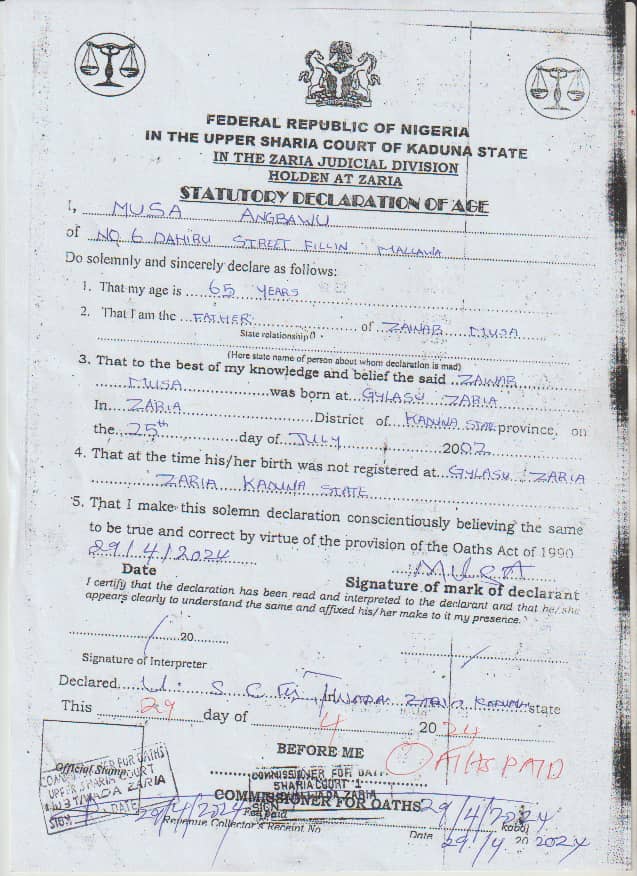 FEDERAL REPUBLIC OF NIGERIA
IN THE UPPER SHARIA COURT OF KADUNA STATE
IN THE ZARIA JUDICIAL DIVISION
HOLDEN AT ZARIA
STATUTORY DECLARATION OF AGE
I, MUSA ANGBAWU
of NO 6 DAHIRU STREET FILLIN MALLAWA
Do solemnly and sincerely declare as follows:
1. That my age is 65 YEARS
2. That I am the FATHER of ZAINAB MUSA
State relationship()
(Here state name of person about whom declaration is mad)
3. That to the best of my knowledge and belief the said ZAINAB
MUSA was born at GYLASU ZARIA
In ZARIA District of KADUNA STATE province, on
the 25th day of JULY 2002
4. That at the time his/her birth was not registered at GYLASU ZARIA
ZARIA KADUNA STATE
5. That I make this solemn declaration conscientiously believing the same
to be true and correct by virtue of the provision of the Oaths Act of 1990
29/4/2024 MUSA
Date Signature of mark of declarant
I certify that the declaration has been read and interpreted to the declarant and that he/she
appears clearly to understand the same and affixed his/her make to it my presence.
20
Signature of Interpreter
Declared U. S. C T/WADA ZARIA KADUNA state
This 29 day of 4 2024
BEFORE ME OATHS PAID
Official Stamp
COMMISSIONER FOR OATHS
UPPER SHARIA COURT
T/WADA ZARIA
SIGN DATE
COMMISSIONER FOR OATH
SHARIA COURT 1
T/WADA ZARIA
SIGN
COMMISSIONER FOR OATHS
29/4/2024 Fee paid 29/4/2024 kobo
Revenue Collector's Receipt No Date 29/4 20 2024